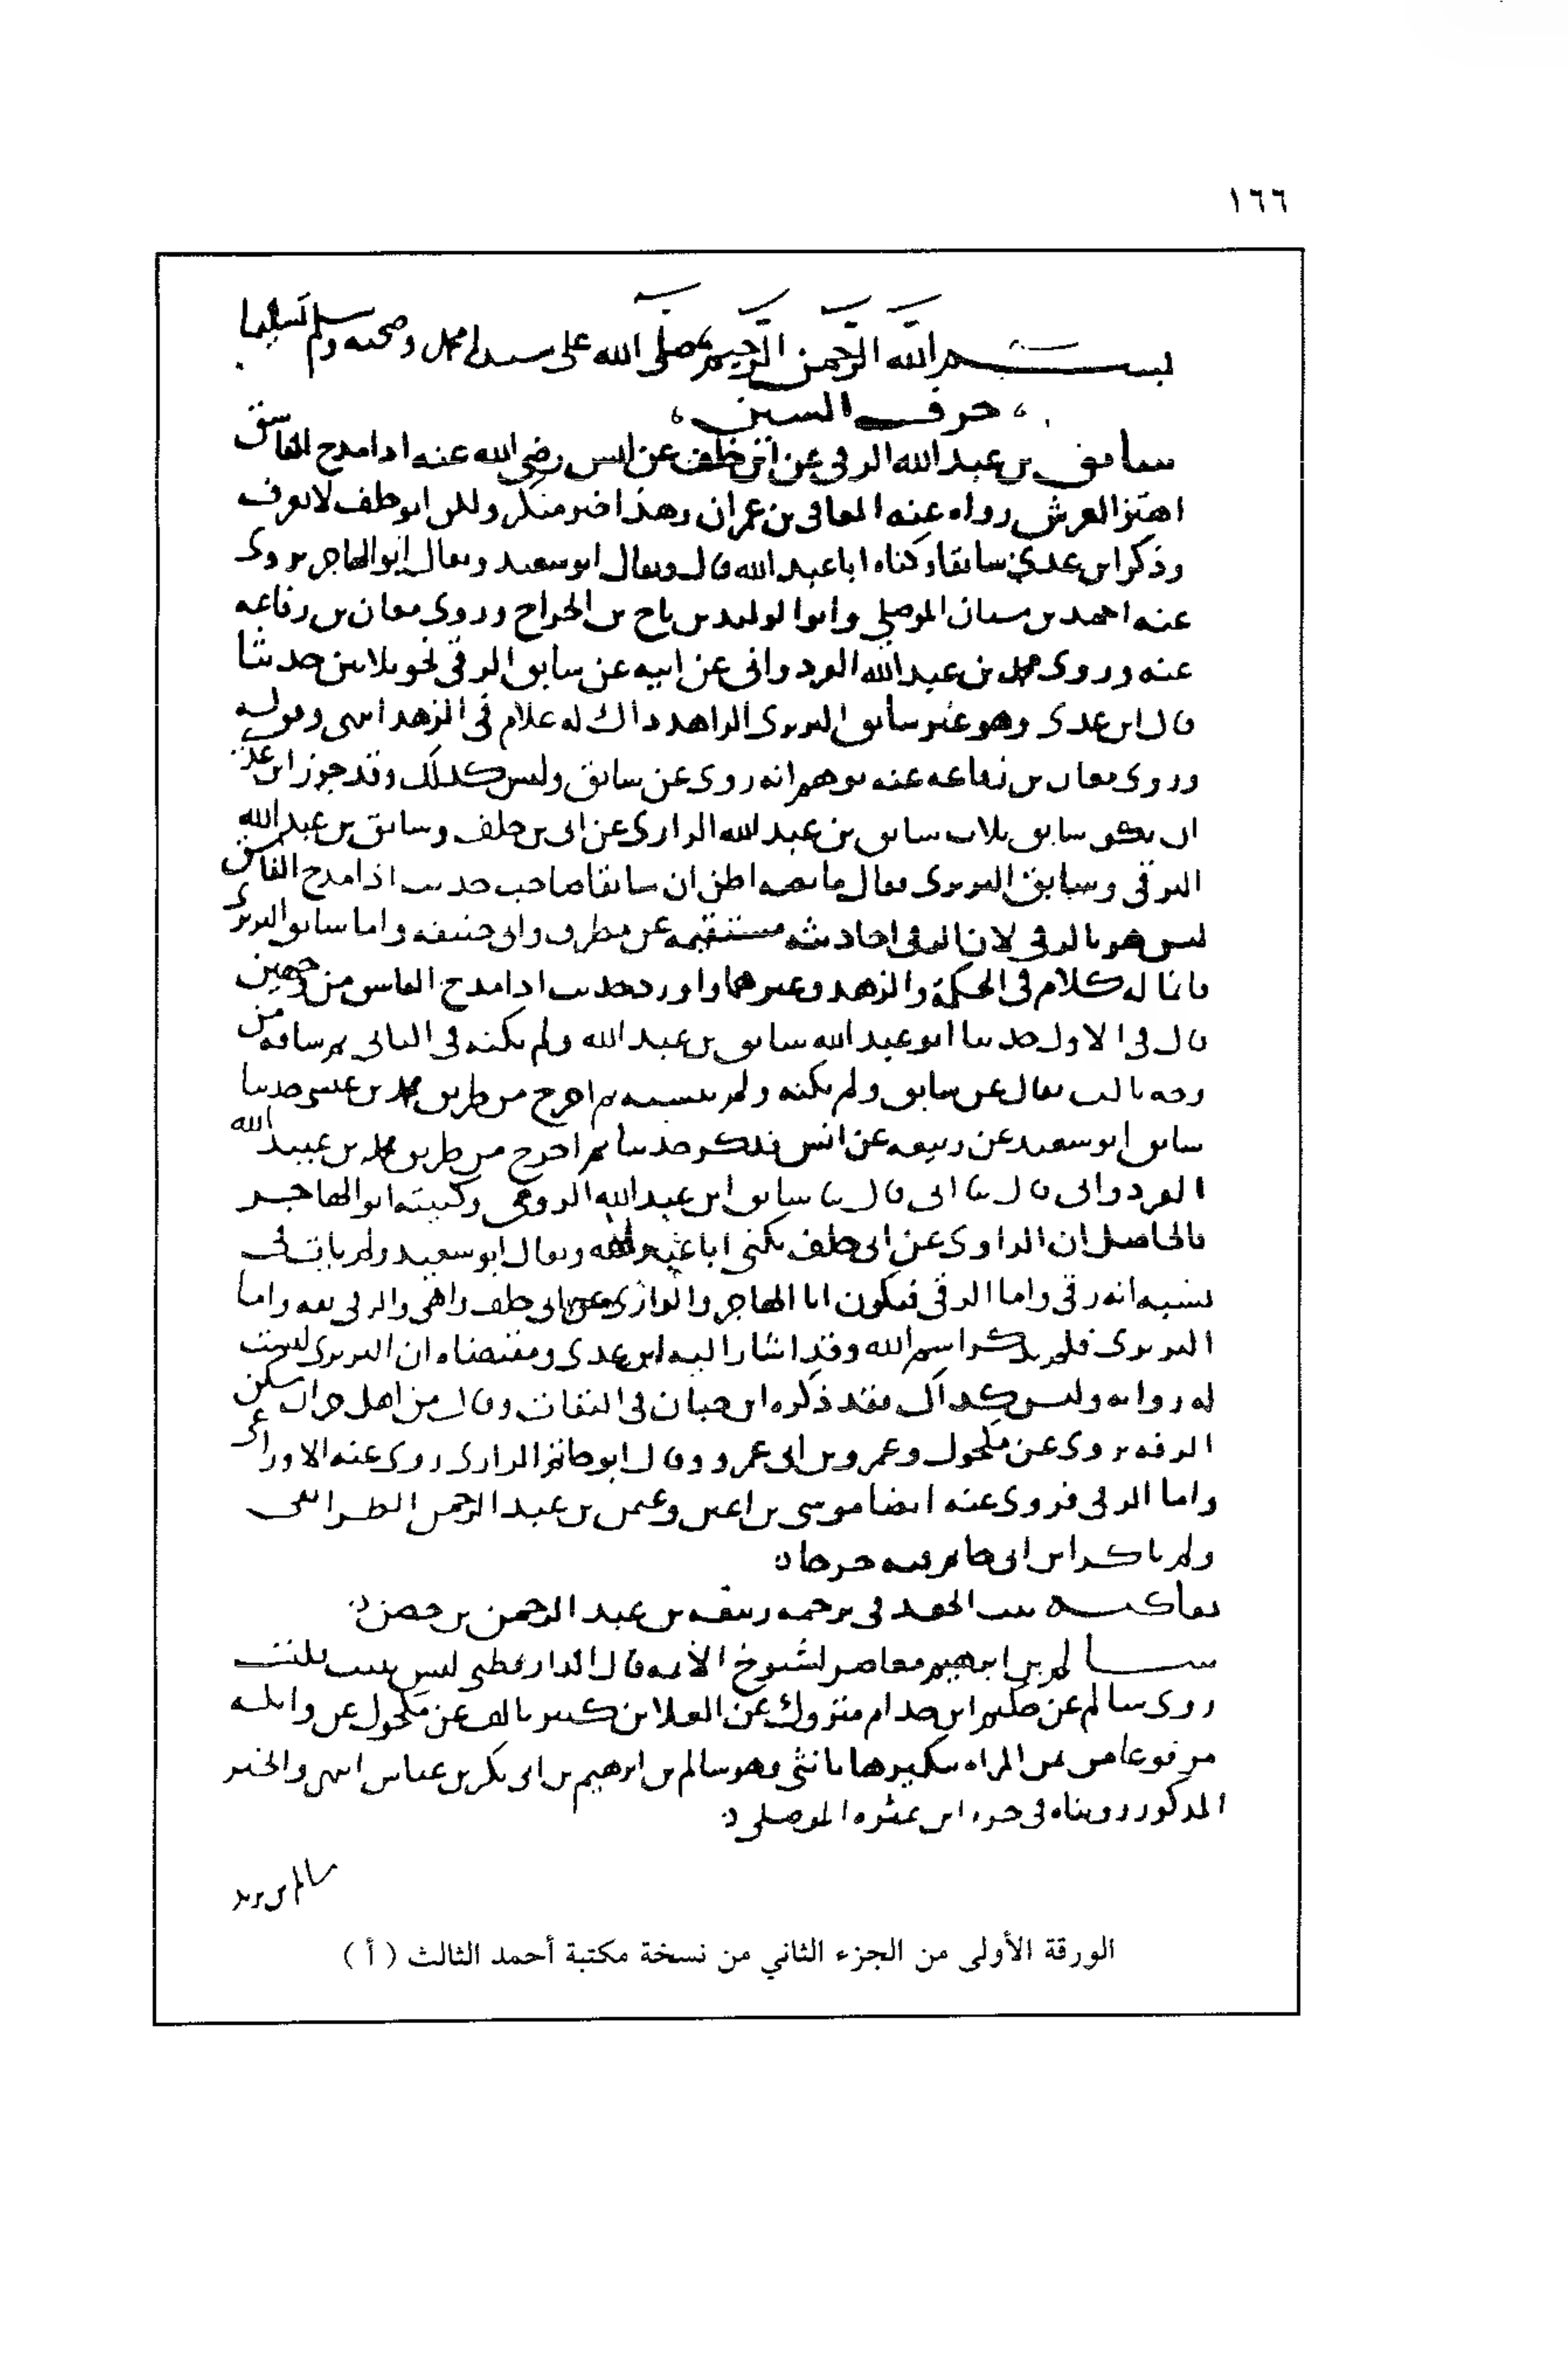 ١٦٦
بسم الله الرحمن الرحيم وصلى الله على سيدنا محمد وصحبه وسلم تسليما
حرف السين
سابق بن عبد الله الرقي عن ابي خلف عن انس رضي الله عنه اذا مدح الفاسق
اهتز العرش رواه عنه المعافى بن عمران وهذا خبر منكر ولكن ابو خلف لا يعرف
وذكر ابن عدي سابقا وكناه ابا عبد الله قال ويقال ابو سعيد ويقال ابو المهاجر يروى
عنه احمد بن سنان الموصلي وابو الوليد بن الجراح وروى معان بن رفاعه
عنه وروى محمد بن عبيد الله القردواني عن ابيه عن سابق الرقي نحو ثلاثين حديثا
قال ابن عدى وهو غير سابق البربرى الزاهد ذاك له كلام في الزهد انتهى وقوله
وروى معان بن رفاعه عنه يوهم انه روى عن سابق وليس كذلك وقد جوز ابن عدي
ان سابق ثلاثه سابق بن عبد الله الراوى عن ابى خلف وسابق بن عبد الله
الرقي وسابق البربرى فقال ما نصه اظن ان سابقا صاحب حديث اذا مدح الفاسق
ليس هو بالرقي لان الرقي احاديثه مستقيمه عن مطرف وابى حنيفه واما سابق البربرى
فانما له كلام في الحكمة والزهد وغيرهما واورد حديث اذا مدح الفاسق من وجهين
قال في الاول حدثنا ابو عبد الله سابق بن عبد الله ولم يكنه في الثانى ثم ساقه من
وجه ثالث فقال عن سابق ولم يكنه ولم ينسبه ثم اخرج من طريق محمد بن حدثنا
سابق ابو سعيد عن ربيعه عن انس فذكر حديثا ثم اخرج من طريق محمد بن عبيد الله
القردوانى قال ثنا ابى قال ثنا سابق ابن عبد الله الرقى وكنيته ابو المهاجر
فالحاصل ان الراوى عن ابى خلف يكنى ابا عبد الله ويقال ابو سعيد ولم يات في
نسبه انه رقي واما الرقي فيكون ابا المهاجر والراوى عن ابى خلف واهى والرقى ثقه واما
البربرى فلم يذكر اسم الله وقد اشار اليه ابن عدى ومقتضاه ان البربرى ليست
له روايه وليس كذلك فقد ذكره ابن حبان في الثقات وقال من اهل حران سكن
الرقه يروى عن مكحول وعمرو بن ابى عمرو وقال ابو حاتم الرازى روى عنه الاوزاعى
واما الرقى فروى عنه ايضا موسى بن اعين وعثمن بن عبد الرحمن الطرائفى
ولم يذكر ابن ابى حاتم فيه جرحا
بن عبد الرحمن بن حصن
سالم بن ابراهيم معاصر لشيوخ الائمه قال الدارقطنى ليس بثبت قلت
روى سالم عن حكيم ابن خذام متروك عن العلا بن كثير تالف عن مكحول عن واثله
مرفوعا من يمن المراه تبكيرها بانثى وهو سالم بن ابرهيم بن ابى بكر بن عياش انتهى والخبر
المذكور رويناه في جزء ابن الموصلى
سالم بن
الورقة الأولى من الجزء الثاني من نسخة مكتبة أحمد الثالث ( أ )